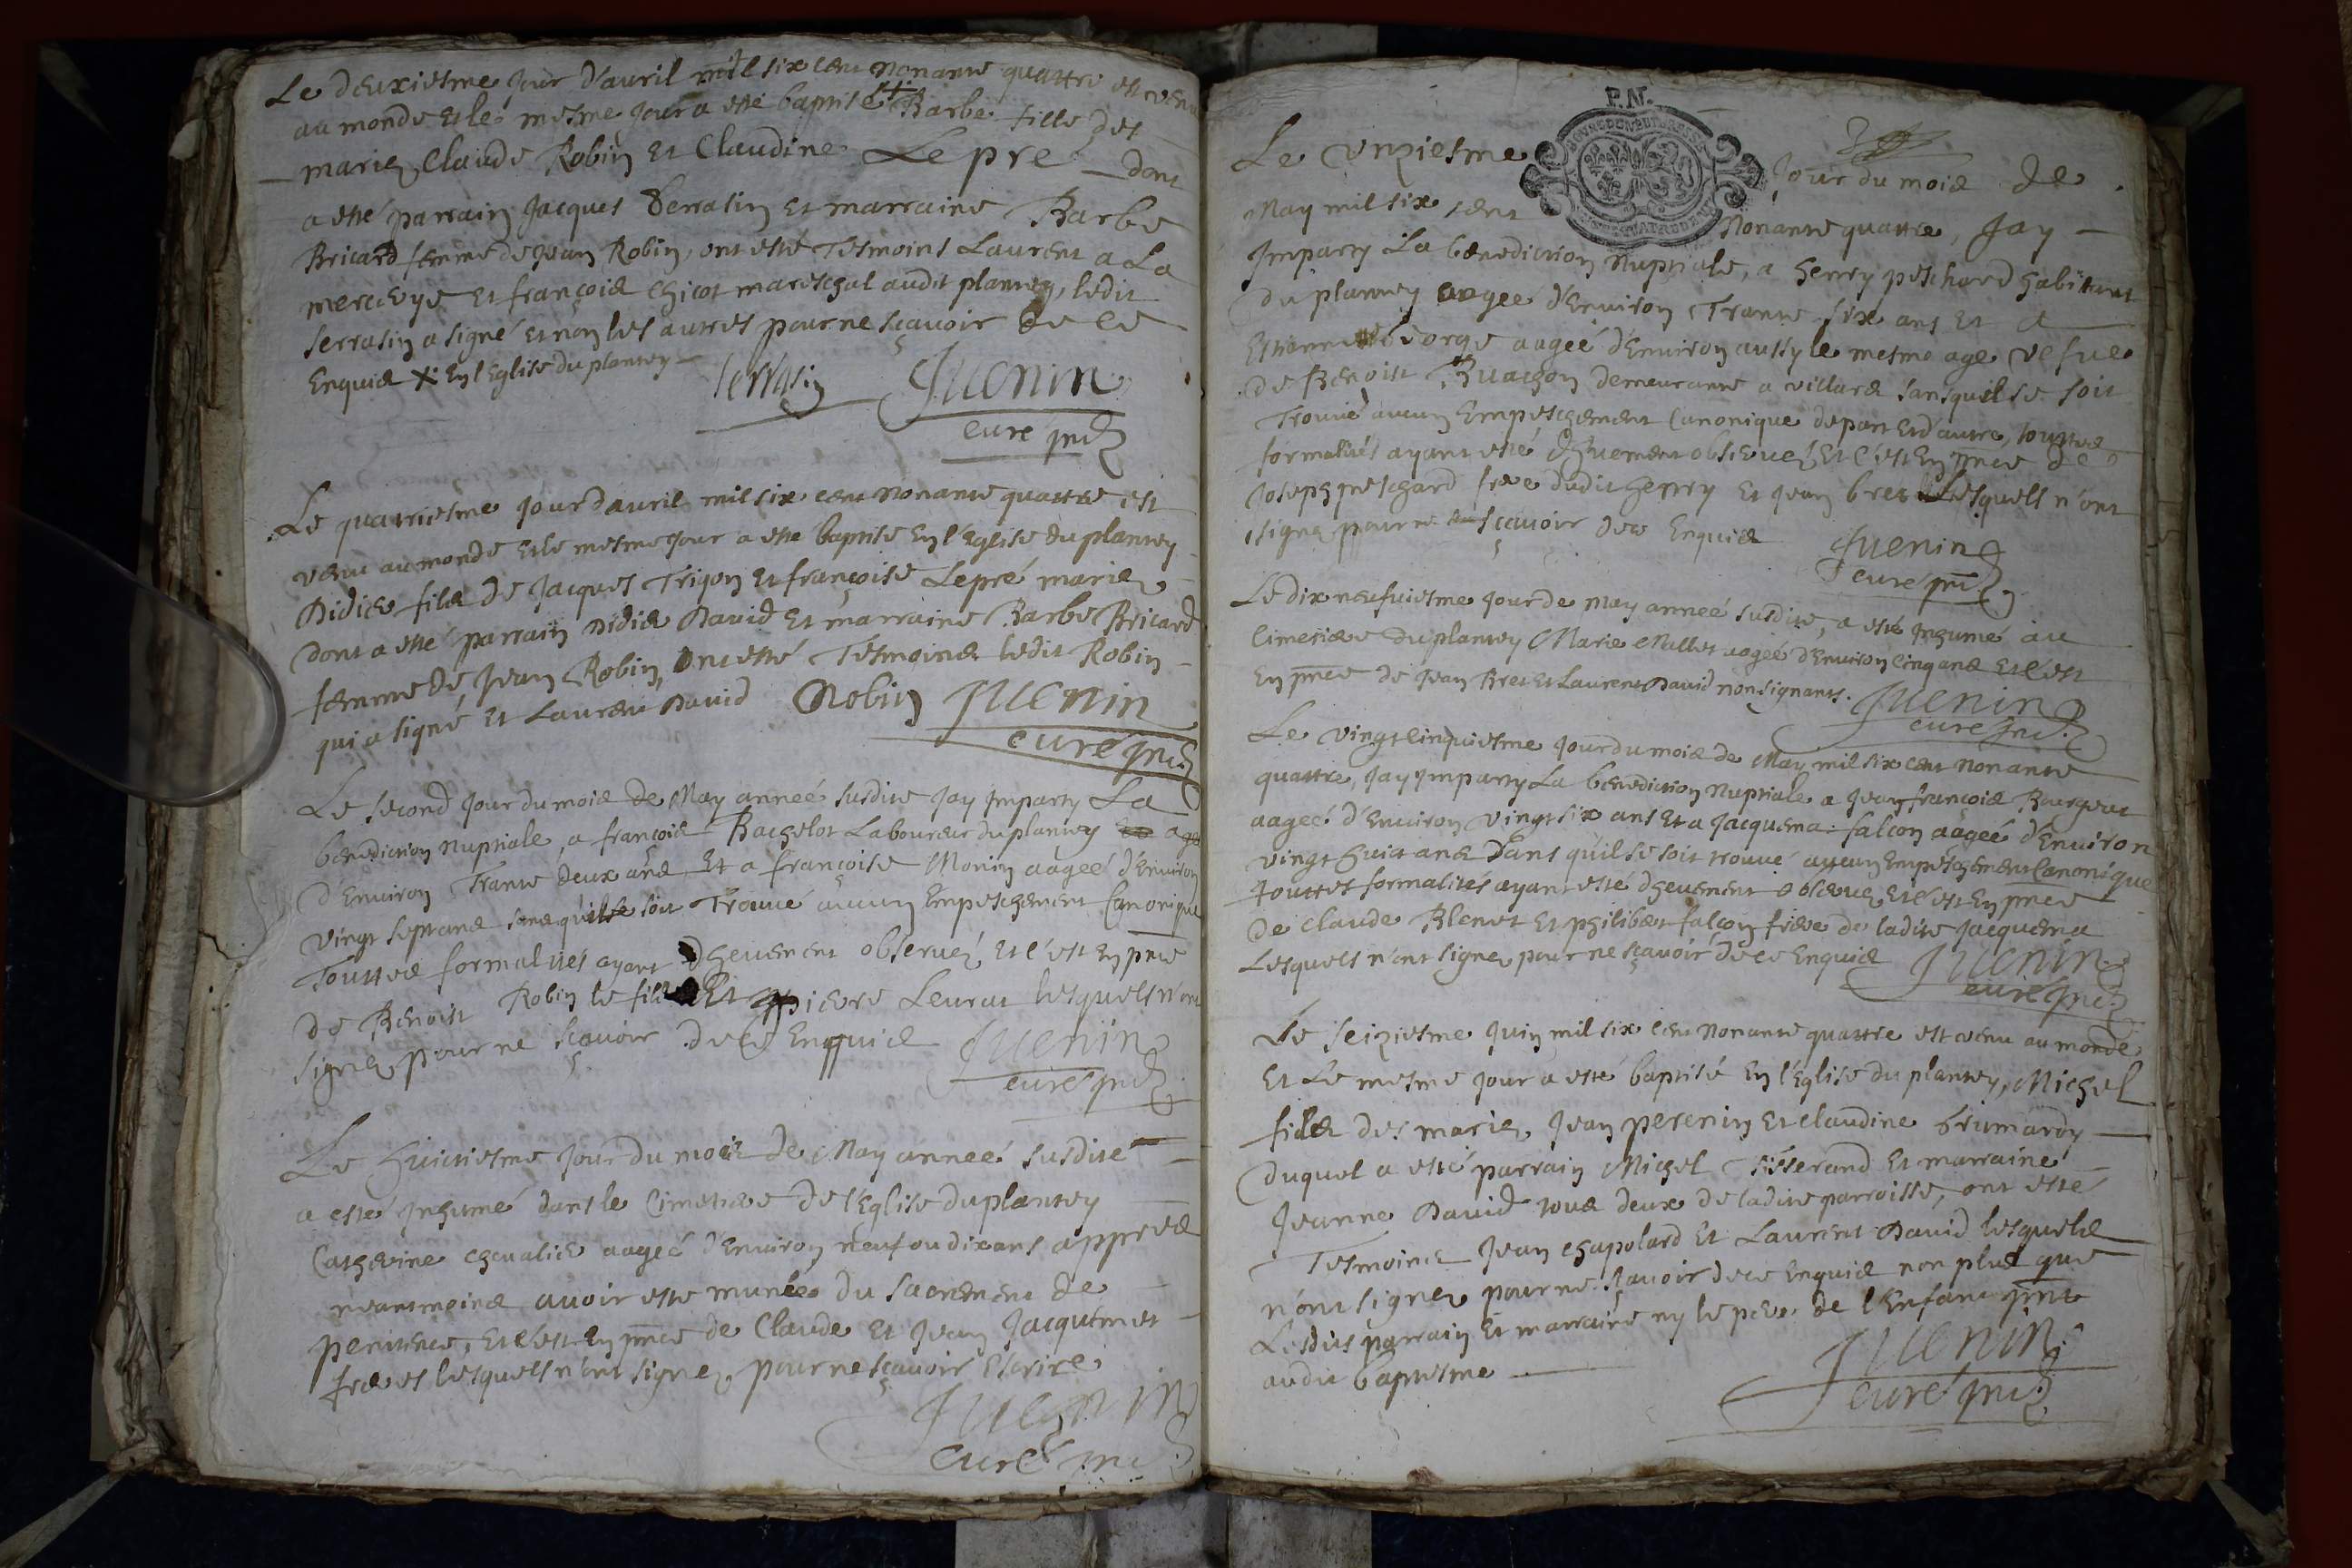 Le deuxiesme jour d'auril mil six cent nonante quattre est venu
au monde et le mesme jour a esté baptisé + Barbe fille des
mariez Claude Robin et Claudine Lepre dont
a esté parrain Jacques Serrasin et marraine Barbe
Bricard femme de Jean Robin, ont esté tesmoins Laurent a La
et françois chicot mareschal audit plantey, ledit
serrasin a signé et non les autres pour ne sçavoir de ce
Enquis + En l'Eglise du plantey
Serrasin Juenin
curé
Le quatriesme jour dauril mil six cent nonante quattre est
venu au monde et le mesme jour a esté baptisé en l'Eglise du plantey
Didier fils de Jacques Trigon et françoise Lepré mariez
Dont a esté parrain Didier David et marraine Barbe Bricard
femme de Jean Robin, ont esté Tesmoins ledit Robin
qui a signé et Laurent David Robin Juenin
curé
Le second jour du mois de May anneé susdite Jay Imparty La
bénédiction nuptiale, a françois Bachelot Laboureur du plantey agé
d'Environ Trante deux ans Et a françoise Monin aagée d'Environ
vingt sept ans sans qu'il se soit Trouvé aucun Empeschement Canonique
Touttes formalités ayant dheuement observez, et c'est En pnce
de Benoist Robin le fils Et pierre Leurat lesquels n'ont
signez pour ne sçavoir de ce Enquis Juenin
curé
Le huictiesme jour du mois de May anneé susdite
a esté Inhumé dans le Cimetiere de l'Eglise du plantey
Catherine chevalier aageé d'Environ neuf ou dix ans appres
neantmoins avoir esté munée du sacrement de
penitence, Et c'est En pnce de Claude et Jean Jacquemet
freres lesquels n'ont signez pour ne sçavoir Escrire
Juenin
curé
P.N.
Le Vnziesme Jour du mois de
May mil six cent Nonante quattre, Jay
Imparty La benediction Nuptiale, a henry peschard habitant
du plantey aageé d'Environ Trante six ans et a
George aageé d'Environ aussy le mesme age vefue
de Benoist demeurante a villars sans quil se soit
Trouué aucun Empeschement Canonique de part et d'autre, touttes
formalités ayant esté dhuement observez Et c'est En pnce de
Joseph peschard frere dudit henry Et Jean bret Lesquels n'ont
signez pour ne sçavoir de ce Enquis Juenin
curé
Le dix neufuiesme jour de may anneé susdite, a esté Inhumé au
Cimetiere du plantey Marie Mallet aageé d'Environ cinq ans et c'est
En pnce de Jean Bret et Laurent David non signants. Juenin
curé
Le vingt cinquiesme jour du mois de May mil six cent nonante
quattre, Jay Imparty La benediction Nuptiale a Jean françois Bourgeat
aageé d'Environ vingt six ans et a Jacquema falcon aageé d'Environ
vingt huict ans sans qu'il se soit trouué aucun Empeschement Canonique
touttes formalités ayant esté dheuement observez, et c'est En pnce
de Claude Blenet et philibert falcon frere de ladite Jacquema
Lesquels n'ont signez pour ne sçavoir de ce Enquis Juenin
curé
Le seiziesme Juin mil six cent nonante quattre est venu au monde
et Le mesme jour a esté baptisé En l'Eglise du plantey, Michel
fils des mariez Jean perenin et claudine
Duquel a esté parrain Michel Tisserand et marraine
Jeanne David tous deux de ladite parroisse, ont esté
Tesmoins Jean chapolard Et Laurent David lesquels
n'ont signez pour ne sçavoir de ce Enquis non plus que
Lesdits parrain Et marraine ny le pere de l'Enfant pnt
audit baptesme
Juenin
curé